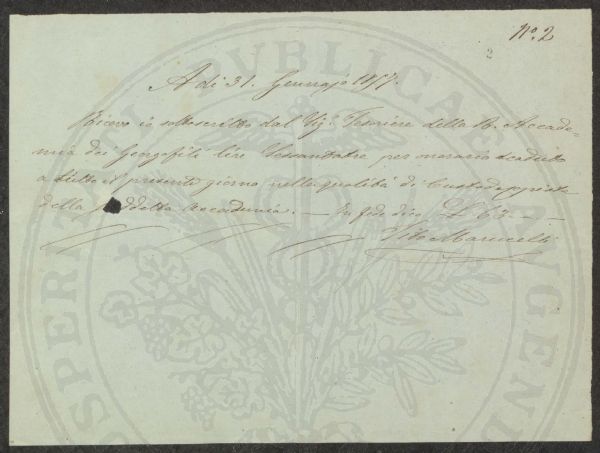 N.º 2
2
A dì 31. Gennajo 1857.
Ricevo io sottoscritto dal Sig.r Tesoriere della R. Accade-
mia dei Georgofili lire Sessantatre per onorario scaduto
a tutto il presente giorno nella qualità di Custode, e
della suddetta Accademia. — In fede dico £ 63. —
Vito Marucelli
PROSPERITATI PUBLICAE AUGENDAE